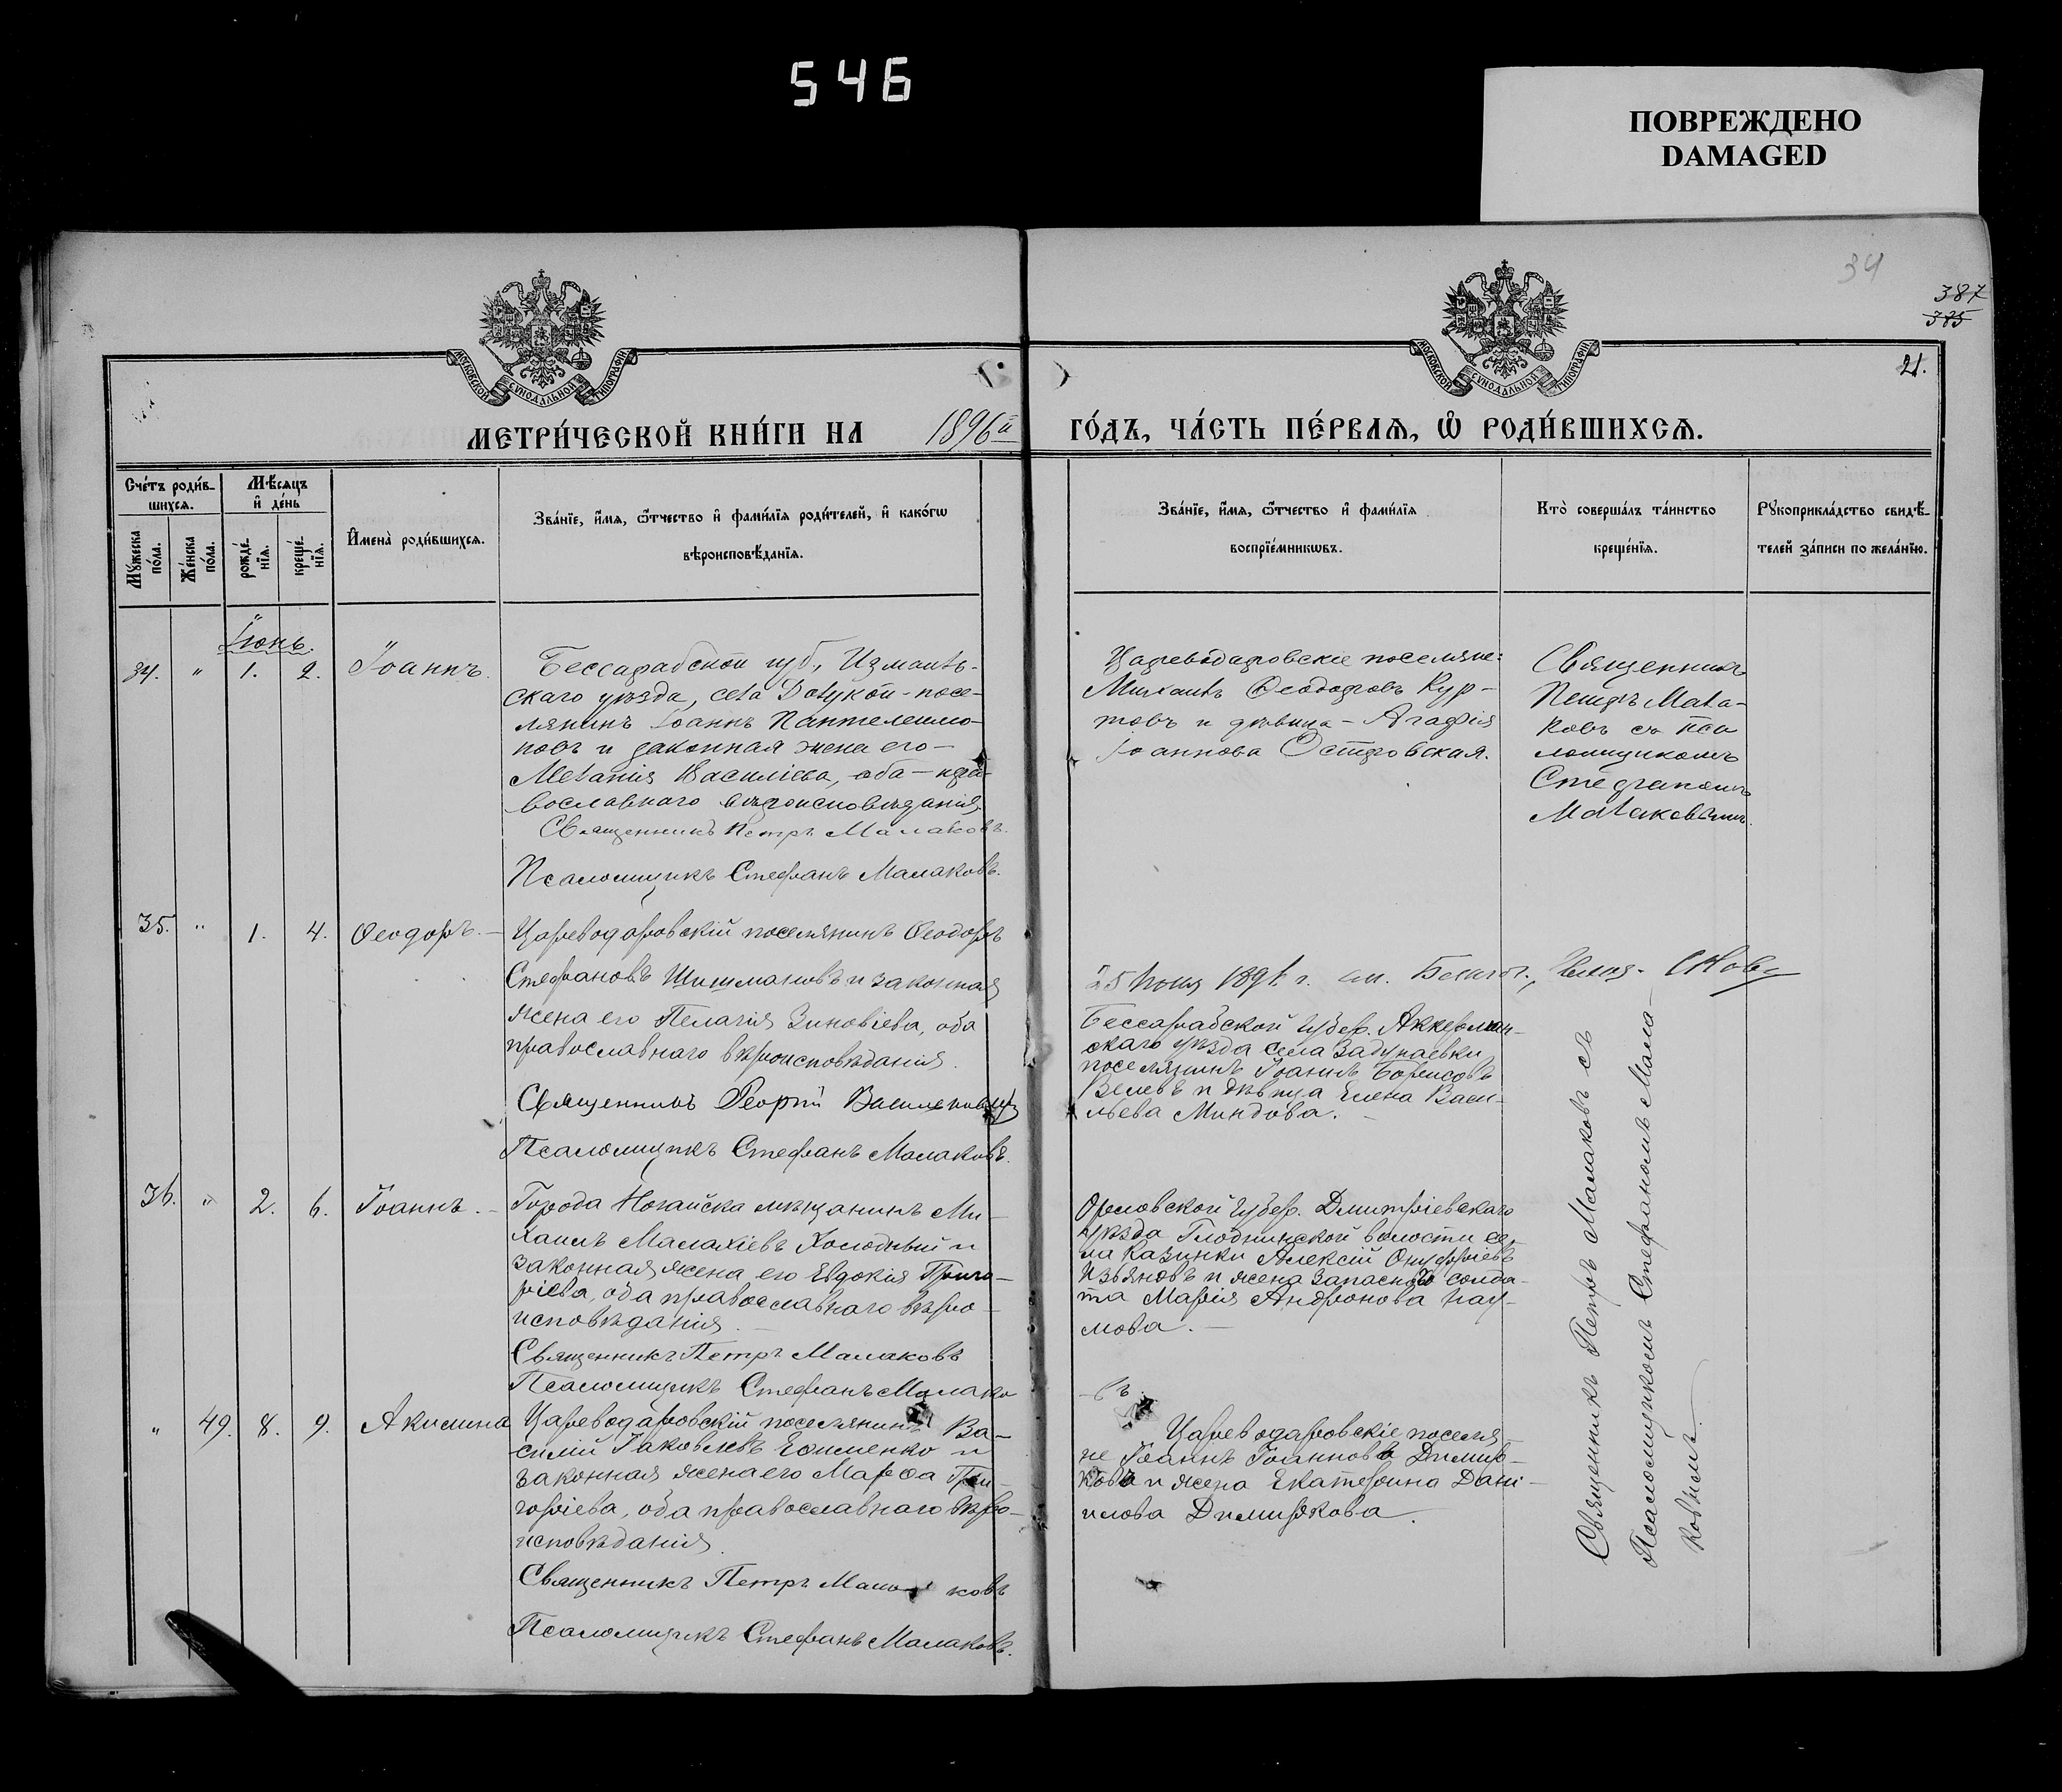 546
ПОВРЕЖДЕНО
DAMAGED
34
387
385
21.
МОСКОВСКОЙ СѴНОДАЛЬНОЙ ТИПОГРАФІИ
МОСКОВСКОЙ СѴНОДАЛЬНОЙ ТИПОГРАФІИ
МЕТРИ́ЧЕСКОЙ КНИ́ГИ НА 1896й ГО́ДЪ, ЧА́СТЬ ПЕ́РВАѦ, Ѡ҆ РОДИ́ВШИХСѦ.
Сче́тъ роди́в-
шихсѧ.
Мꙋ́жеска
по́ла.
Же́нска
по́ла.
Мѣ́сѧцъ
и҆ де́нь
рожде́-
нїѧ.
креще́-
нїѧ.
И҆мена̀ роди́вшихсѧ.
Зва́нїе, и҆́мѧ, ѻ҆́тчество и҆ фами́лїѧ роди́телей, и҆ како́гѡ
вѣроисповѣ́данїѧ.
Зва́нїе, и҆́мѧ, ѻ҆́тчество и҆ фами́лїѧ
воспрїе́мникѡвъ.
Кто̀ соверша́лъ та́инство
креще́нїѧ.
Рꙋкоприкла́дство свидѣ́-
телей за́писи по жела́нїю.
Іюнь.
34. " 1. 2. Іоаннъ.
Бессарабской губ., Измаиль-
скаго уѣзда, села Долукой - посе-
лянинъ Іоаннъ Пантелеимо-
новъ и законная жена его -
Меланія Василіева, оба - пра-
вославнаго вѣроисповѣданія.
Священникъ Петръ Малаковъ.
Псаломщикъ Стефанъ Малаковъ.
Цареводаровскіе поселяне:
Михаилъ Ѳеодоровъ Кур-
товъ и дѣвица - Агафія
Іоаннова Островская.
Священникъ
Петръ Мала-
ковъ съ Пса
ломщикомъ
Стефаномъ
Малаковымъ.
35. " 1. 4. Ѳеодоръ. -
Цареводаровскій поселянинъ Ѳеодоръ
Стефановъ Шишмановъ и законная
жена его Пелагія Зиновіева, оба
православнаго вѣроисповѣданія.
Священникъ Георгій
Псаломщикъ Стефанъ Малаковъ.
25 Іюня 189 г.
Бессарабской Губер. Аккерман-
скаго уѣзда села Задунаевки
поселянинъ Іоаннъ Борисовъ
Велевъ и дѣвица Елена Васи-
льева Миндова. -
36. " 2. 6. Іоаннъ. -
Города Ногайска мѣщанинъ Ми-
хаилъ Малахіевъ Холодный и
законная жена его Евдокія Григо-
ріева, оба православнаго вѣро-
исповѣданія. -
Священникъ Петръ Малаковъ
Псаломщикъ Стефанъ Малако
-въ.
Орловской Губер. Дмитріевскаго
уѣзда Глоднинской волости се-
ла Казинки Алексій Онуфріевъ
Изъяновъ и жена запаснаго солда-
та Марія Андронова Нау-
мова. -
" 49. 8. 9. Акилина
Цареводаровскій поселянинъ Ва-
силій Іаковлевъ Ефименко и
законная жена его Марѳа Гри-
горіева, оба православнаго вѣро-
исповѣданія.
Священникъ Петръ Мала ковъ
Псаломщикъ Стефанъ Малаковъ.
Цареводаровскіе поселя-
не Іоаннъ Іоанновъ Димир-
ковъ и жена Екатерина Дані-
илова Димиркова.
Священникъ Петръ Малаковъ съ
Псаломщикомъ Стефаномъ Мала-
ковымъ.